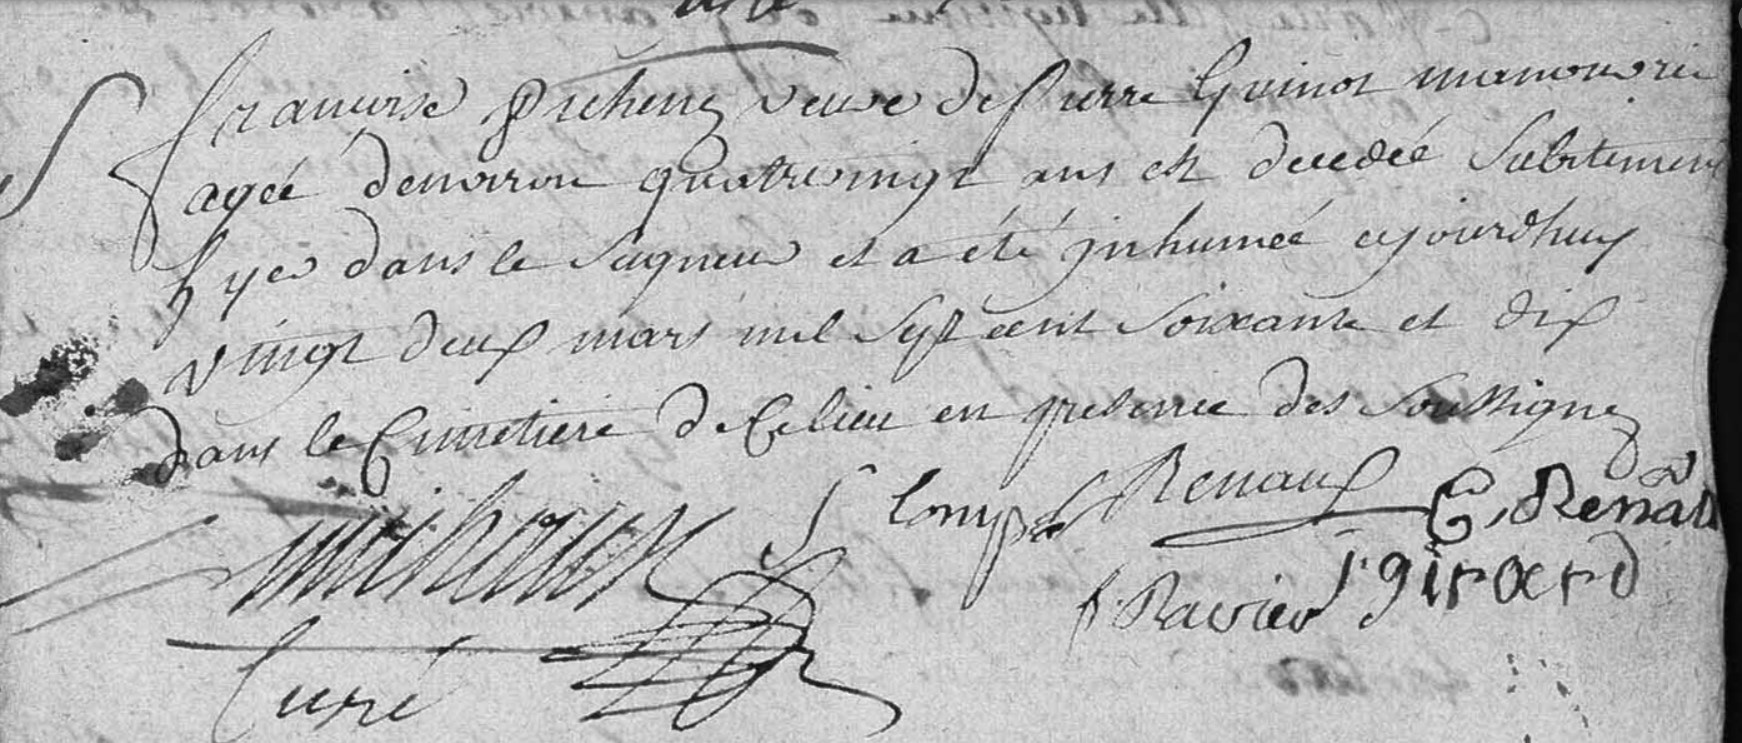 francoise veuve de pierre Guinot manouvrie
agée denviron quatrevingt ans est decedée Subitement
hyer dans le Seigneur et a été inhumée cejourdhuy
vingt deux mars mil Sept cent Soixante et dix
dans le Cimetiere de Ce lieu en presence des Soussignez
Renaux
C, Renad
f. Ravier J. girard
Curé